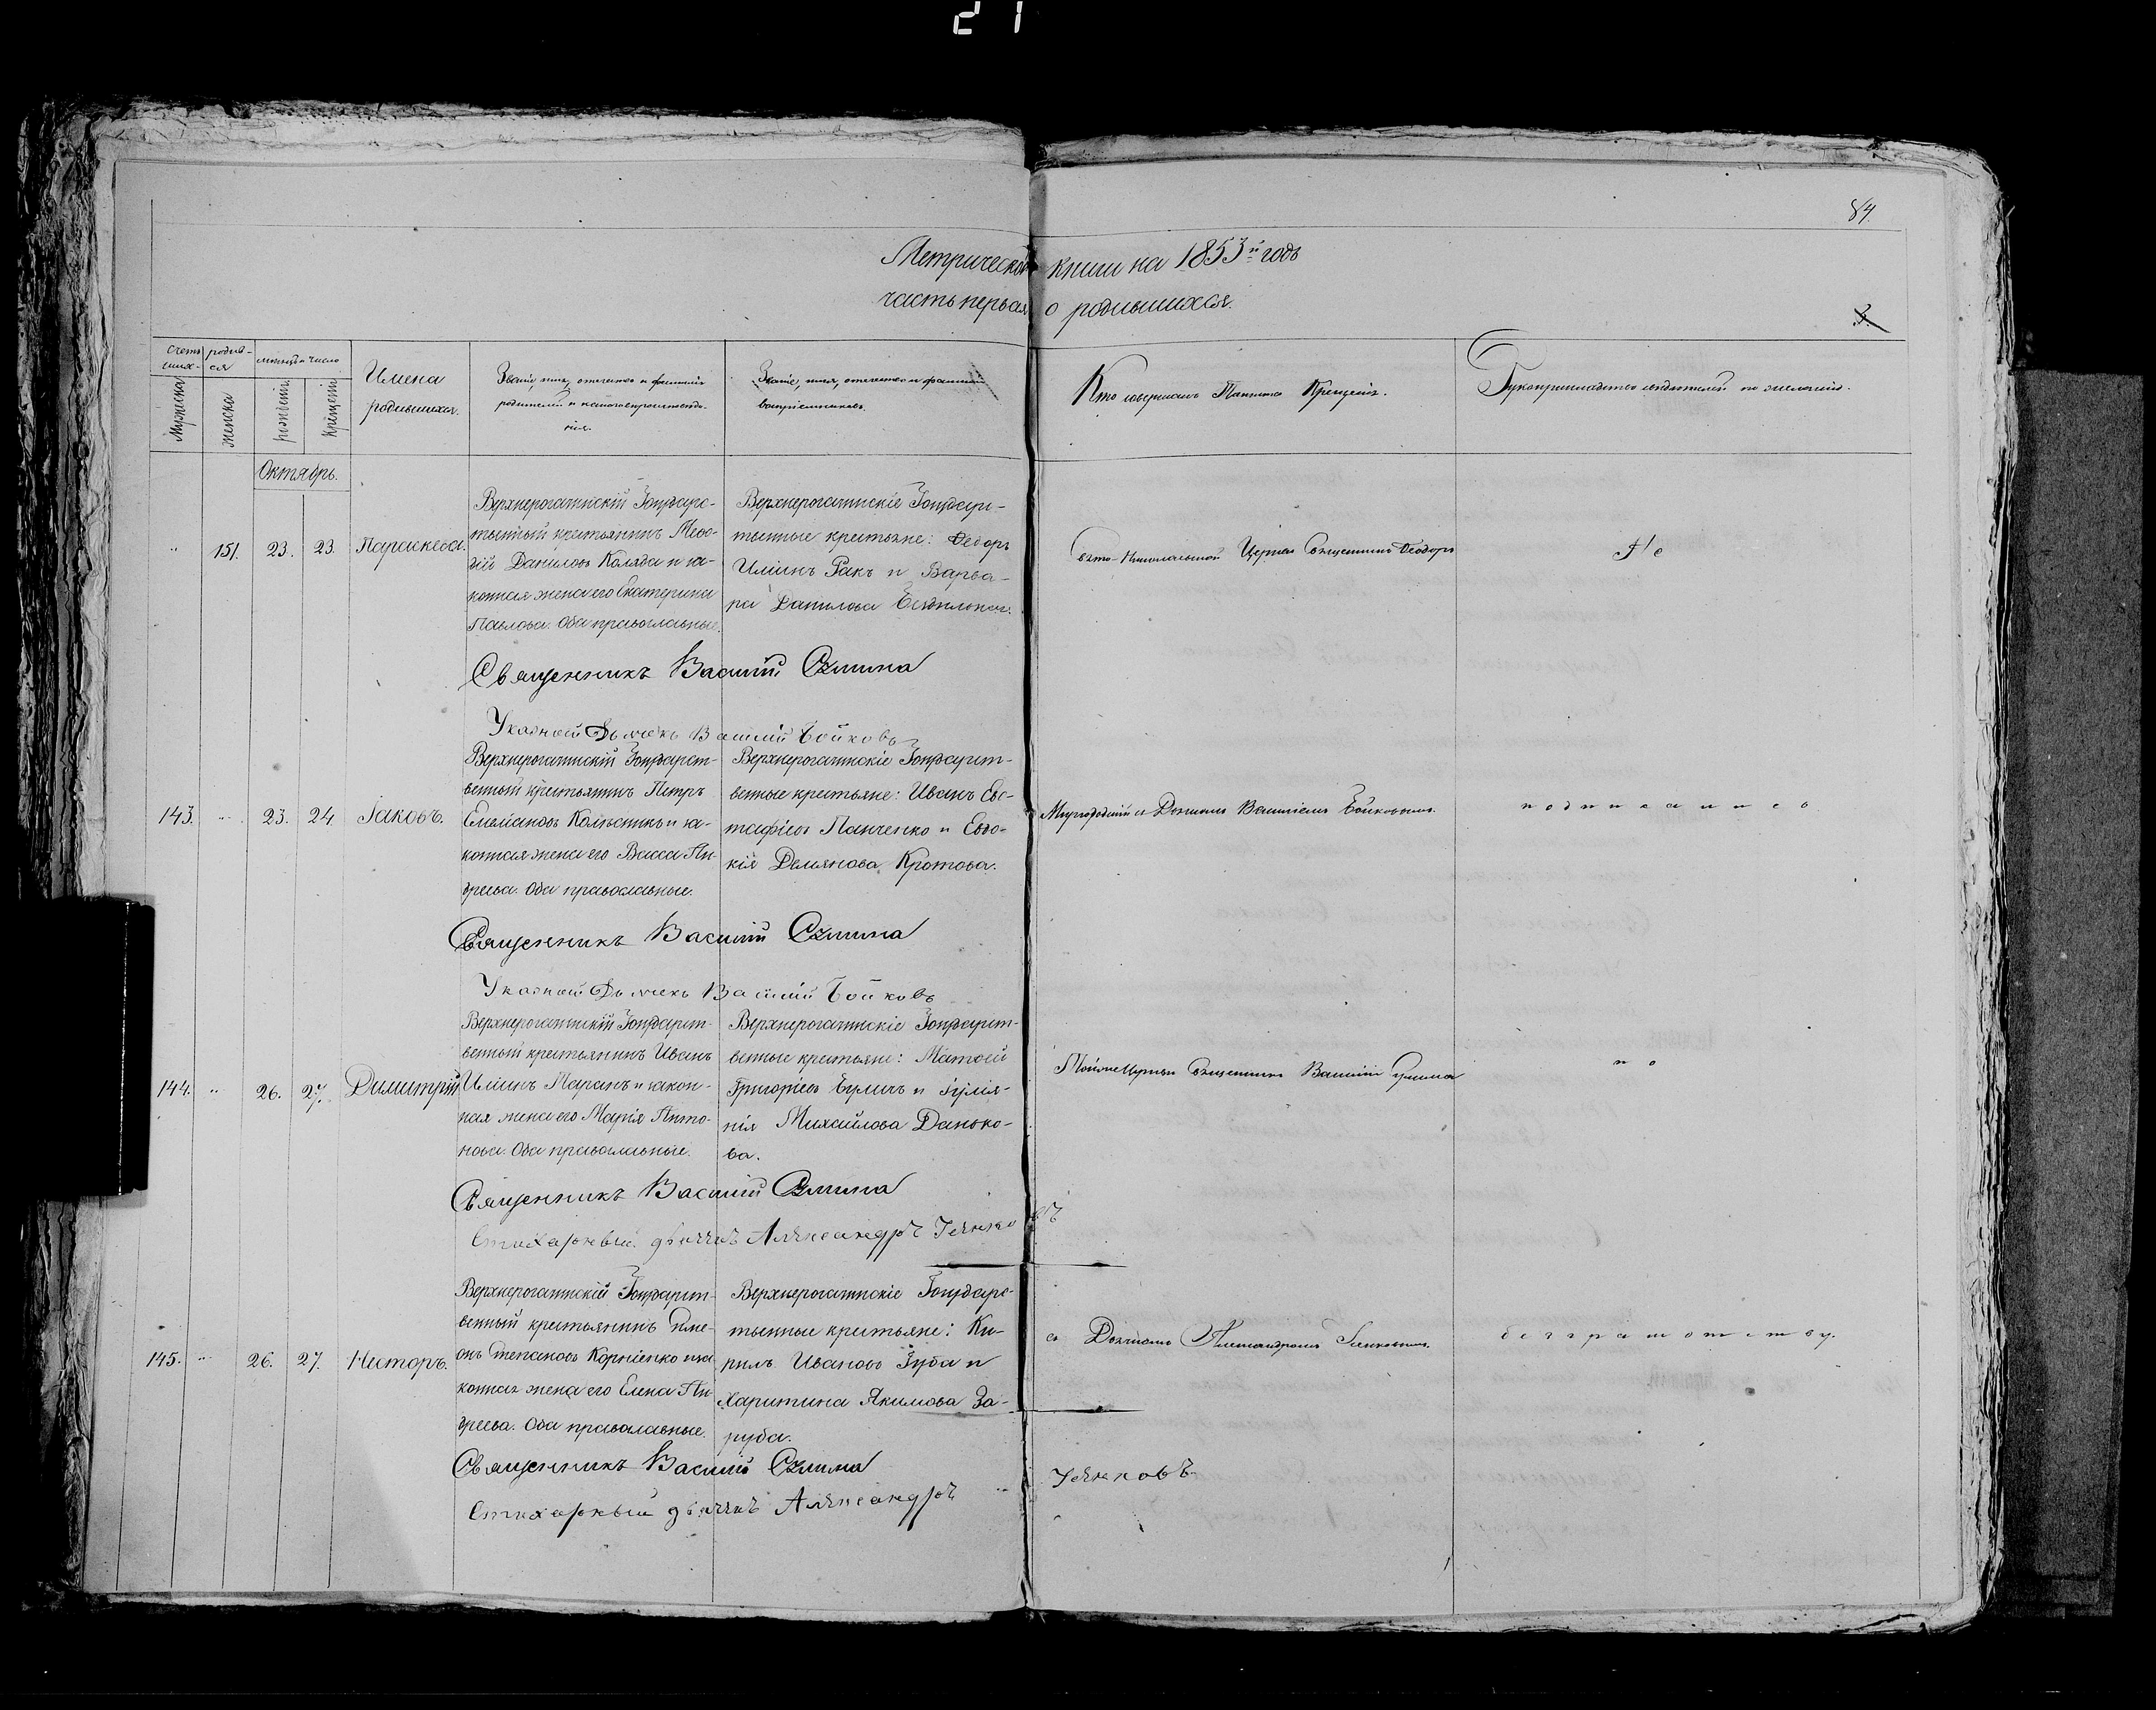 21
84.
Метрической книги на 1853й годъ
часть первая о родившихся.
3.
Счетъ родив-
ших- ся
мѣсяцъ и число
Мужеска
женска
рожденія
крещенія
Имена
родившихся.
Званіе, имя, отечество и фамилія
родителей и какого вѣроисповѣда-
нія.
Званіе, имя, отечество и фамилія
воспріемниковъ.
Кто совершалъ Таинство Крещенія.
Рукоприкладство свидѣтелей по желанію.
Октябрь.
„ 151. 23. 23. Параскева.
Верхнерогачинскій Государс-
твенный крестьянинъ Меѳо-
дій Даниловъ Коляда и за-
конная жена его Екатерина
Павлова. Оба православные.
Верхнерогачинскіе Государс-
твенные крестьяне: Ѳедоръ
Ильинъ Ракъ и Варва-
ра Данилова
Свято-Николаевской Церкви Священникъ Ѳеодоръ
Не
Священникъ Василій
Указной Дьячекъ Василій Бойковъ
143. „ 23. 24. Іаковъ.
Верхнерогачинскій Государст-
венный крестьянинъ Петръ
Емельяновъ Колѣсникъ и за-
конная жена его Васса Ан-
дреева. Оба православные.
Верхнерогачинскіе Государст-
венные крестьяне: Иванъ Евс-
тафіевъ Панченко и Евдо-
кія Демянова Кротова.
Миргородскій съ Дьячкомъ Василіемъ Бойковымъ.
подписались
Священникъ Василій
Указной Дьячекъ Василій Бойковъ
144. „ 26. 27. Димитрій
Верхнерогачинскій Государст-
венный крестьянинъ Иванъ
Ильинъ Таранъ и закон-
ная жена его Марія Анто-
нова. Оба православные.
Верхнерогачинскіе Государст-
венные крестьяне: Матѳей
Григоріевъ и Іулія-
нія Михайлова Данько-
ва.
Тойже Церкви Священникъ Василій
по
Священникъ Василій
Стихарный дьячекъ Александръ
145. „ 26. 27. Несторъ.
Верхнерогачинскій Государст-
венный крестьянинъ Симе-
онъ Степановъ Корніенко и за
конная жена его Елена Ан-
дреева. Оба православные.
Верхнерогачинскіе Государс-
твенные крестьяне: Ки-
рилъ Ивановъ Зуба и
Харитина Якимова За-
руба.
съ Дьячкомъ Александромъ
безграмотству.
Священникъ Василій
Стихарный дьячекъ Александръ